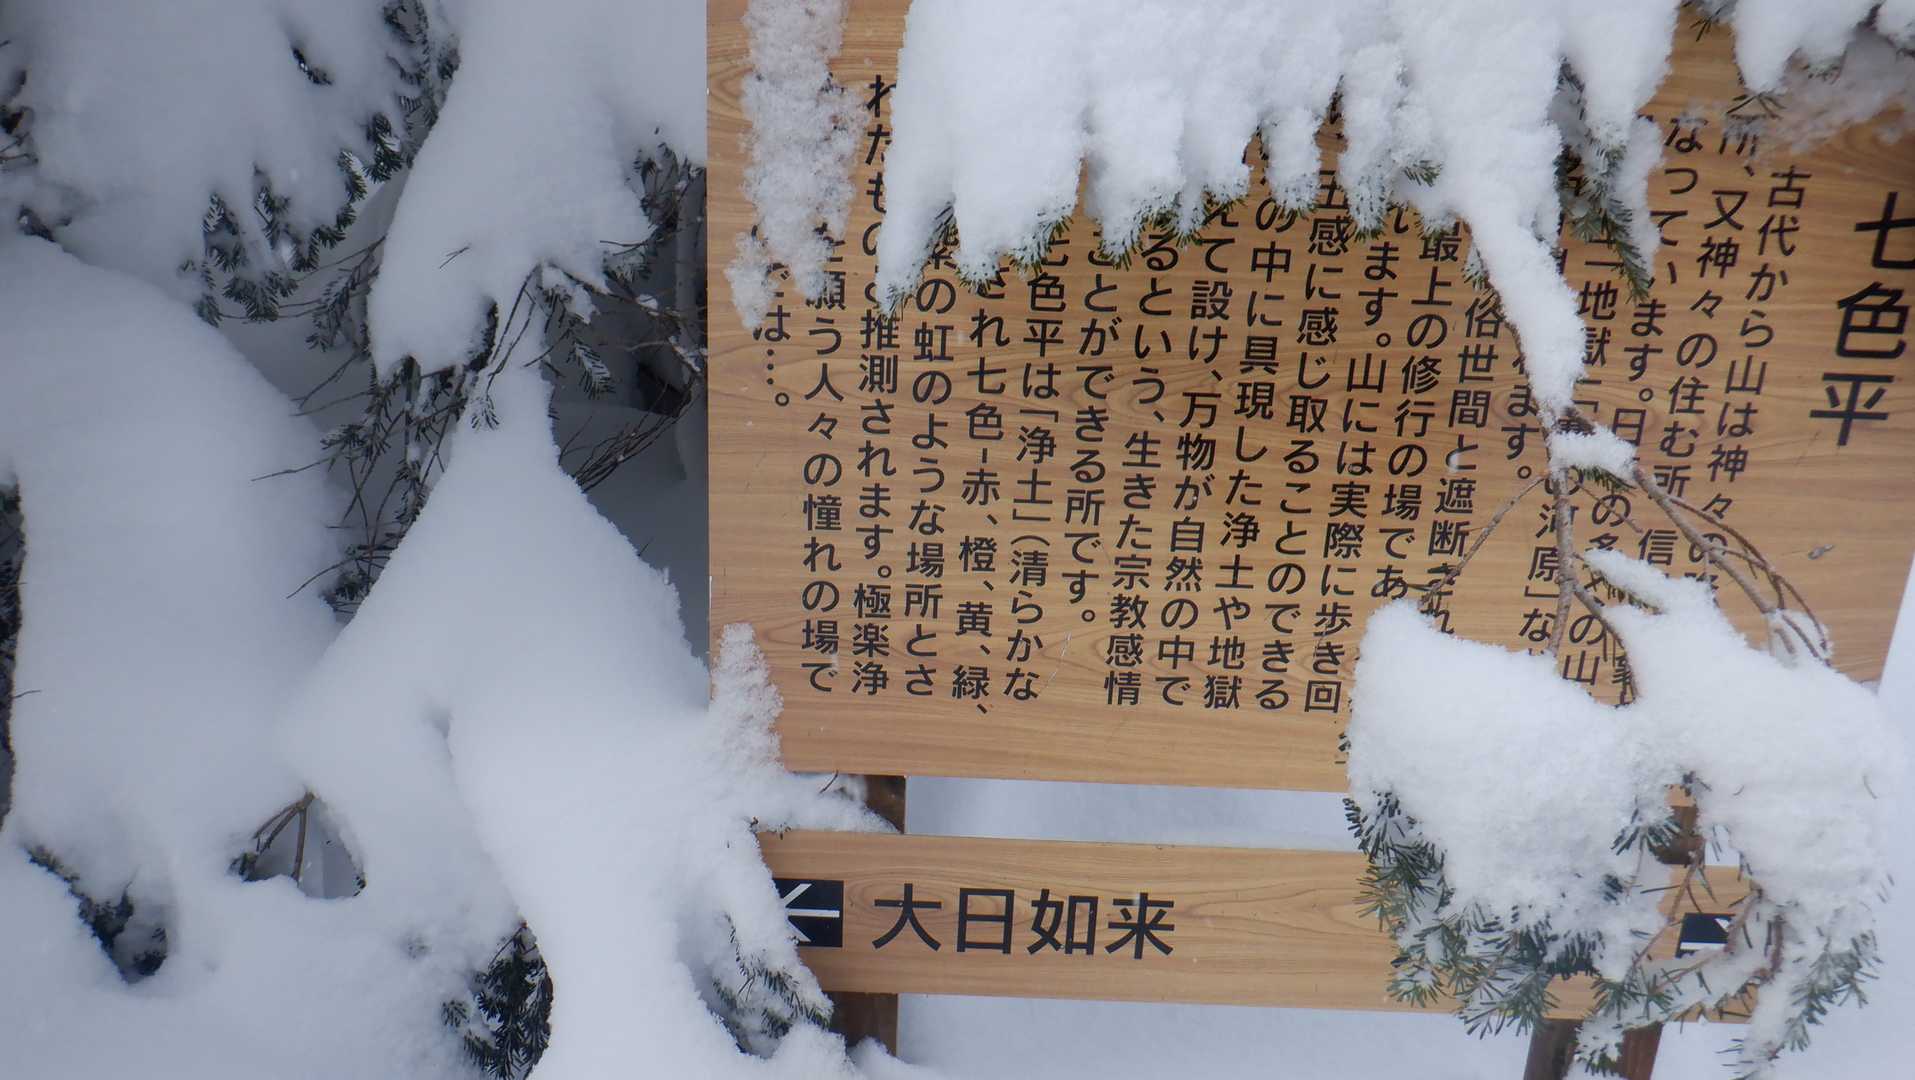 七色平
古代から山は神々の
所、又神々の住む所
なっています。日
の多々の山
「地獄」「の河原」な
れます。
俗世間と遮断され
最上の修行の場であ
います。山には実際に歩き回
五感に感じ取ることのできる
の中に具現した浄土や地獄
えて設け、万物が自然の中で
るという、生きた宗教感情
ことができる所です。
七色平は「浄土」(清らかな
され七色-赤、橙、黄、緑、
紫の虹のような場所とさ
れたものと推測されます。極楽浄
を願う人々の憧れの場で
では…。
大日如来